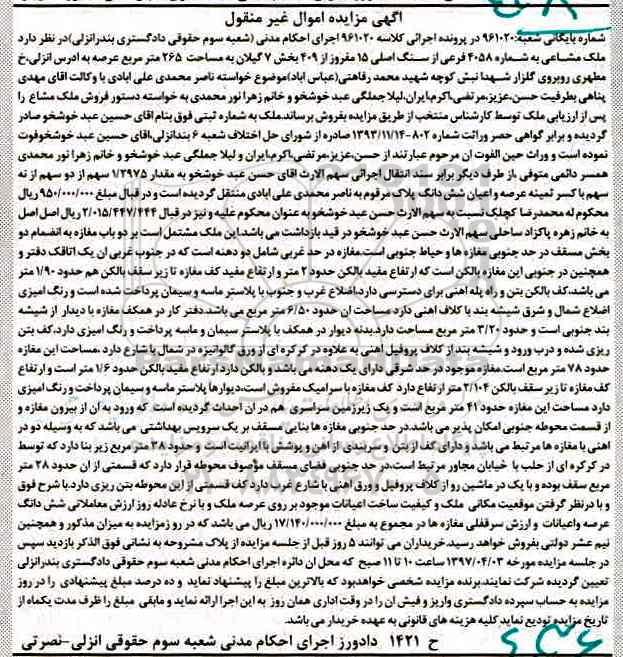 آگهی مزایده اموال غیر منقول
شماره بایگانی شعبه: ۹۶۱۰۲۰ در پرونده اجرائی کلاسه ۹۶۱۰۲۰ اجرای احکام مدنی (شعبه سوم حقوقی دادگستری بندرانزلی)در نظر دارد
ملک مشاعی به شماره ۴۰۵۸ فرعی از سنگ اصلی ۱۵ مفروز از ۴۰۹ بخش ۷ گیلان به مساحت ۲۶۵ متر مربع عرصه به ادرس انزلی.خ
مطهری روبروی گلزار شهدا نبش کوچه شهید محمد رفاهتی(عباس اباد)موضوع خواسته ناصر محمدی علی ابادی با وکالت اقای مهدی
پناهی بطرفیت حسن.عزیز.مرتضی.اکرم.ایران.لیلاجملگی عبد خوشخو و خانم زهرا نور محمدی به خواسته دستور فروش ملک مشاع را
پس از ارزیابی ملک توسط کارشناس منتخب از طریق مزایده بفروش برساند.ملک به شماره ثبتی فوق بنام اقای حسین عبد خوشخو صادر
گردیده و برابر گواهی حصر وراثت شماره ۸۰۲-۱۳۹۳/۱۱/۱۴ صادره از شورای حل اختلاف شعبه ۶ بندانزلی.اقای حسین عبد خوشخوفوت
نموده است و وراث حین الفوت ان مرحوم عبارتند از حسن.عزیز.مرتضی.اکرم.ایران و لیلا جملگی عبد خوشخو و خانم زهرا نور محمدی
همسر دائمی متوفی .از طرف دیگر برابر سند انتقال اجرائی سهم الارث اقای حسن عبد خوشخو به مقدار ۱/۲۹۷۵ سهم از دو سهم از نه
سهم با کسر ثمینه عرصه و اعیان شش دانگ پلاک مرقوم به ناصر محمدی علی ابادی منتقل گردیده است و در قبال مبلغ ۹۵۰/۰۰۰/۰۰۰ ریال
محکوم له محمدرضا کچلک نسبت به سهم الارث حسن عبد خوشخو به عنوان محکوم علیه و نیز در قبال ۲/۰۱۵/۴۴۷/۴۴۴ ریال اصل اصل
به خانم زهره پاکزاد ساحلی.سهم الارث حسن عبد خوشخو در قید بازداشت می باشد.این ملک مشتمل است بر دو باب مغازه به انضمام دو
بخش مسقف در حد جنوبی مغازه ها و حیاط جنوبی است.مغازه در حد غربی شامل دو دهنه است که در جنوب غربی ان یک اتاقک دفتر و
همچنین در جنوبی این مغازه بالکن است که ارتفاع مفید بالکن حدود ۲ متر و ارتفاع مفید کف مغازه تا زیر سقف بالکن هم حدود ۱/۹۰ متر
می باشد.کف بالکن بتن و راه پله اهنی برای دسترسی دارد.اضلاع غرب و جنوب با پلاستر ماسه و سیمان پرداخت شده است و رنگ امیزی
اضلاع شمال و شرق شیشه بند با کلاف اهنی دارد مساحت ان حدود ۶/۵۰ متر مربع می باشد.دفتر کار در همکف مغازه با دیدار از شیشه
بند جنوبی است و حدود ۳/۲۰ متر مربع مساحت دارد.بدنه دیوار در همکف با پلاستر سیمان و ماسه پرداخت و رنگ امیزی دارد.کف بتن
ریزی شده و درب ورود و شیشه بند از کلاف پروفیل اهنی به علاوه در کرکره ای از ورق گالوانیزه در شمال یا شارع دارد .مساحت این مغازه
حدود ۷۸ متر مربع است.مغازه موجود در حد شرقی دارای یک دهنه می باشد و بالکن دارد ارتفاع مفید بالکن حدود ۱/۶ متر است و ارتفاع
کف مغازه تا زیر سقف بالکن ۲/۱۰۴ متر ارتفاع دارد کف مغازه با سرامیک مفروش است.دیوارها پلاستر ماسه و سیمان پرداخت و رنگ امیزی
دارد مساحت این مغازه حدود ۴۱ متر مربع است و یک زیرزمین سراسری هم در ان احداث گردیده است که ورود به ان از بیرون مغازه و
از قسمت محوطه جنوبی امکان پذیر می باشد.در حد جنوبی مغازه ها بنایی مسقف بر یک سرویس بهداشتی می باشد که به وسیله دو در
اهنی با مغازه ها مرتبط می باشد و دارای کف از بتن و سر بندی از افن و پوشش با ایرانیت است و حدود ۳۸ متر مربع زیر بنا دارد که توسط
در کرکره ای از حلب با خیابان مجاور مرتبط است.در حد جنوبی فضای مسقف موصوف محوطه قرار دارد که قسمتی از ان حدود ۲۸ متر
مربع سقف بوده و با یک در ماشین رو از کلاف پروفیل و ورق اهنی با شارع غرب دارد کف قسمتی از این محوطه بتن ریزی دارد.با شرح فوق
و با درنظر گرفتن موقعیت مکانی ملک و کیفیت ساخت اعیانات موجود بر روی عرصه ملک و با نرخ عادله روز ارزش معاملاتی شش دانگ
عرصه واعیانات و ارزش سرقفلی مغازه ها در مجموع به مبلغ ۱۷/۱۴۰/۰۰۰/۰۰۰ ریال می باشد که در رو زمزایده به میزان مذکور و همچنین
نیم عشر دولتی بفروش خواهد رسید.خریداران می توانند ۵ روز قبل از جلسه مزایده از پلاک مشروحه به نشانی فوق الذکر بازدید سپس
در جلسه مزایده مورخه ۱۳۹۷/۰۴/۰۳ ساعت ۱۰ تا ۱۱ صبح که محل ان دائره اجرای احکام مدنی شعبه سوم حقوقی دادگستری بندرانزلی
تعیین گردیده شرکت نمایند.برنده مزایده شخصی خواهدبود که بالاترین مبلغ را پیشنهاد نماید و ده درصد مبلغ پیشنهادی را در روز
مزایده به حساب سپرده دادگستری واریز و فیش ان را در وقت اداری همان روز به این اجرا ارائه نماید و مابقی مبلغ را ظرف مدت یکماه از
تاریخ مزایده تودیع نماید کلیه هزینه های قانونی به عهده خریدار می باشد.
ح ۱۴۲۱ دادورز اجرای احکام مدنی شعبه سوم حقوقی انزلی-نصرتی